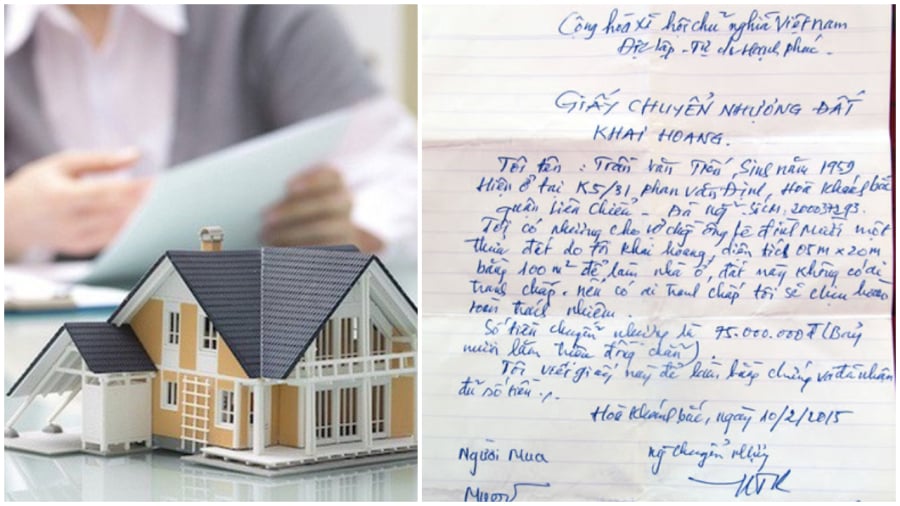 Cộng hoà xã hội chủ nghĩa Việt Nam
Độc lập - Tự do Hạnh phúc -
GIẤY CHUYỂN NHƯỢNG ĐẤT
KHAI HOANG.
Tôi tên : Trần Văn Trến, Sinh năm 1959
Hiện ở tại K5/31, Phan Văn Định, Hoà Khánh bắc
quận Liên Chiểu - Đà Nẵng Số CM: 200037293.
Tôi có nhường cho vợ chồng ông Lê Đình Mười một
thửa đất do tôi khai hoang, diện tích 05m x 20m
bằng 100 m² để làm nhà ở, đất này không có ai
tranh chấp. nếu có ai tranh chấp tôi sẽ chịu hoàn
toàn trách nhiệm.
Số tiền chuyển nhượng là 75.000.000đ (Bảy
mươi lăm triệu đồng chẵn).
Tôi viết giấy này để làm bằng chứng và đã nhận
đủ số tiền.
Hoà Khánh bắc, ngày 10/2/2015
Người Mua
ng chuyển nhượng